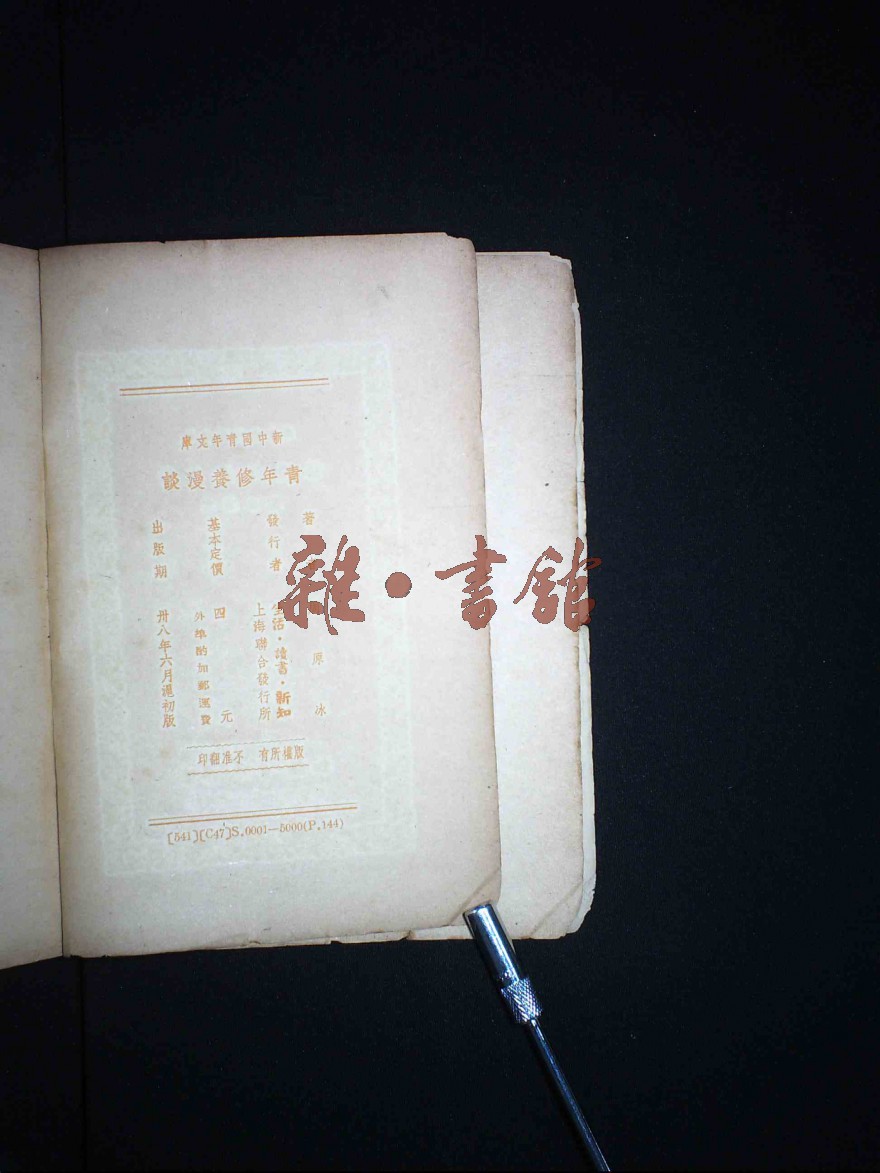 庫文年青國中新
談漫養修年青
著
原冰
發行者
生活·讀書·新知
上海聯合發行所
基本定價
四元
外埠酌加郵運費
出版期
卅八年六月滬初版
印翻准不　有所權版
[541][C47]S.0001—5000(P.144)
雜·書館